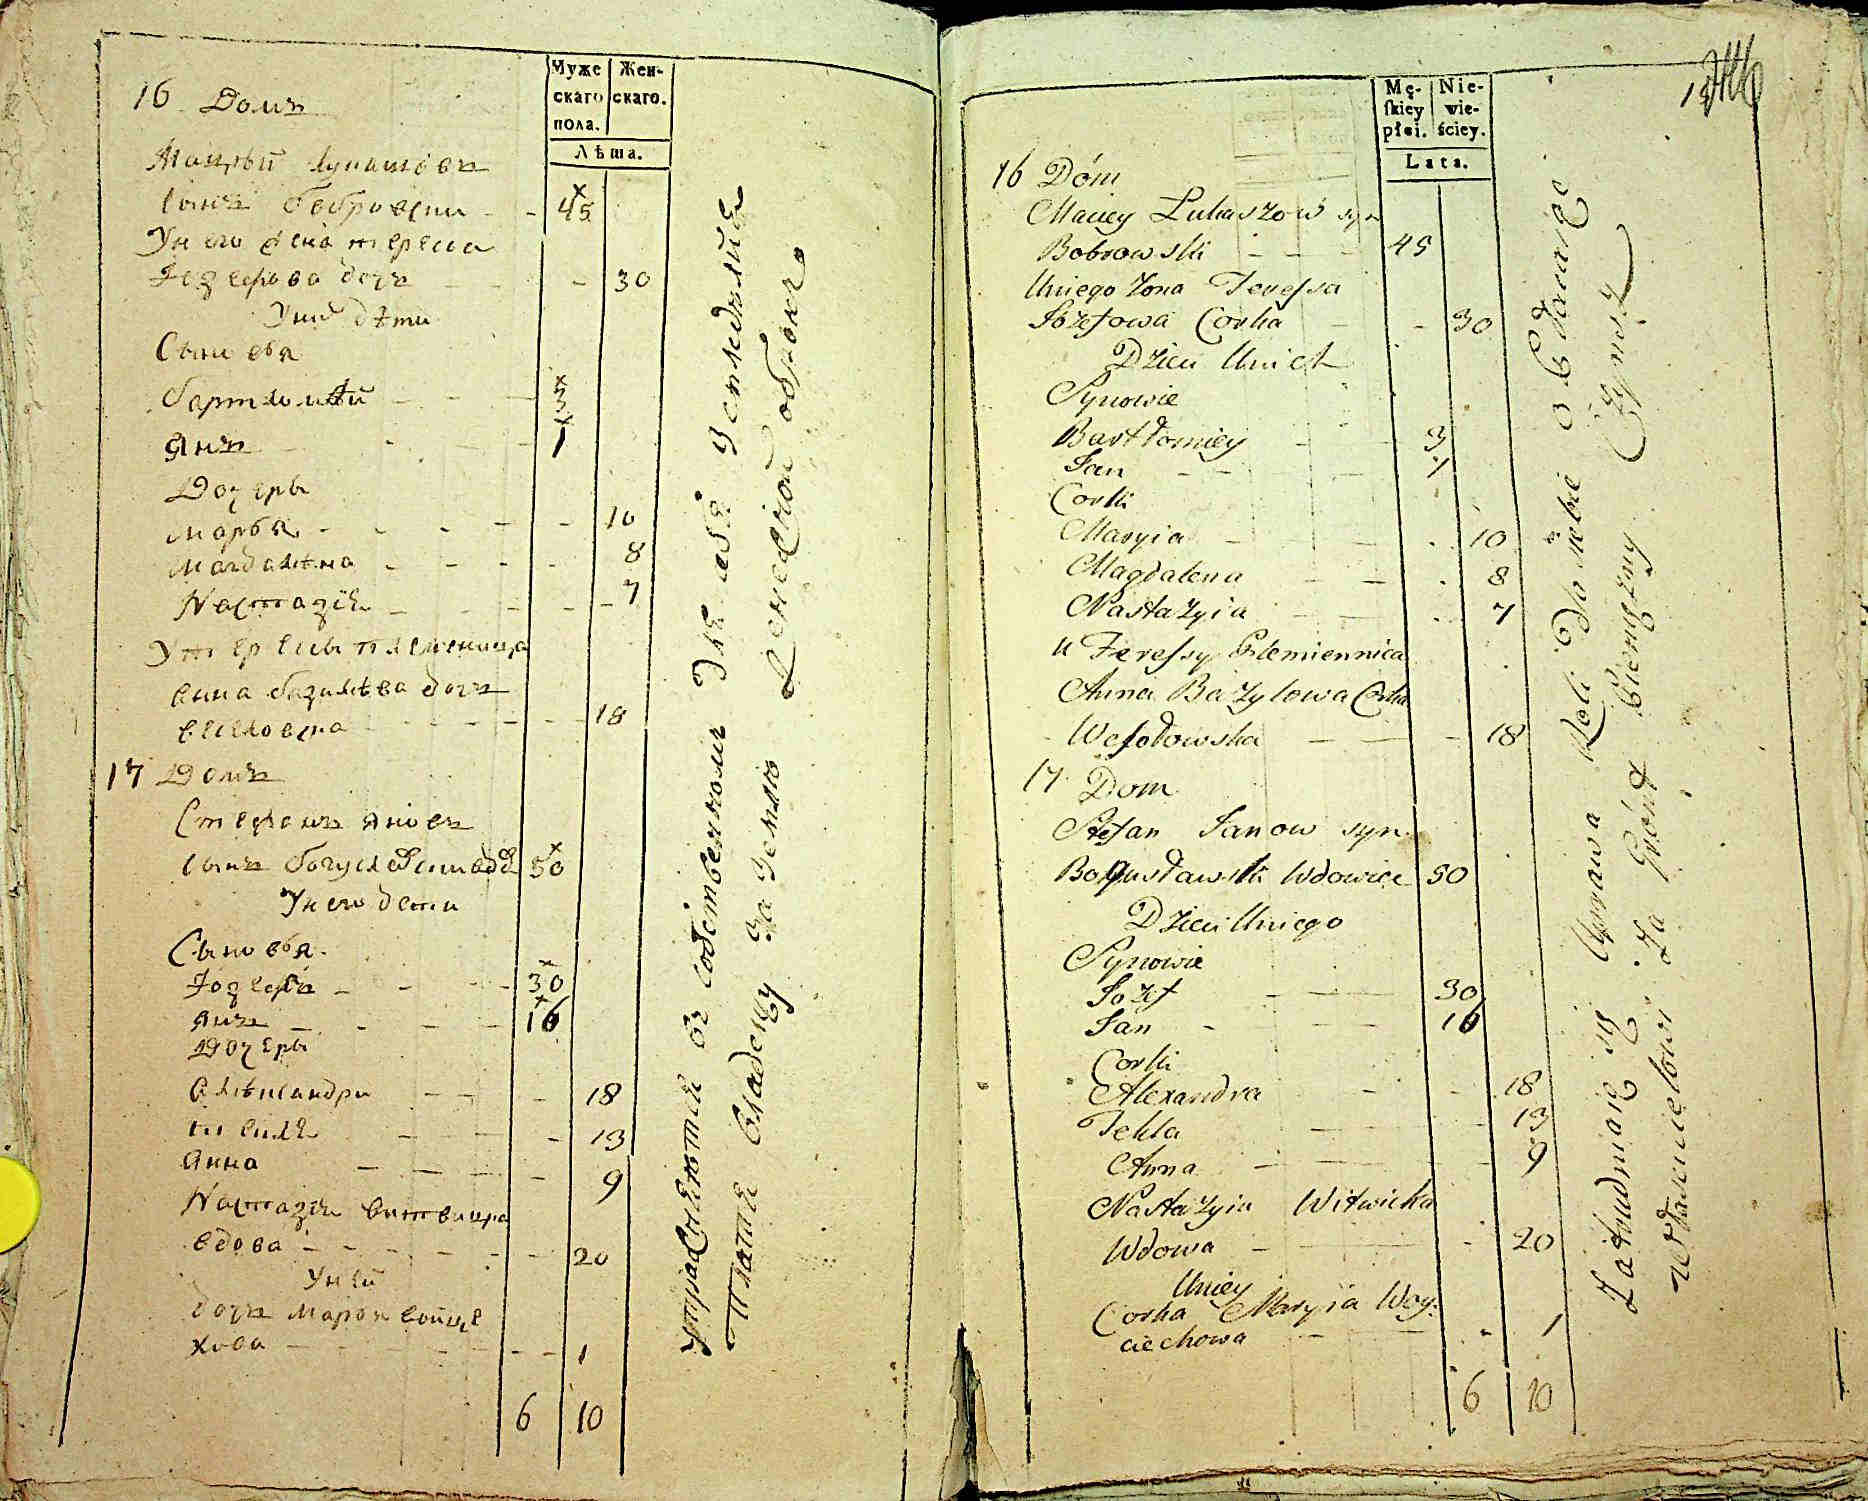 Муже
скаго
пола.
Жен-
скаго.
Лѣта.
16 Домъ
Мацѣй Лукашовъ
сынъ Бобровски - - 45
У него жена тереса
Іозефова дочъ - - - 30
У нихъ дѣти
Сыновя
Бартломѣй - - - 3
Янъ - - - 1
Дочеры
Марья - - - - - 10
Магдалѣна - - - - 8
Настазія - - - - - 7
У тересы племенница
Анна Базилѣва дочъ
Веселовска - - - - - 18
17 Домъ
Стефанъ Яновъ
сынъ Богуславски вдовѣ 50
У него дети
Сыновя
Іозефъ - - - 30
Янъ - - - - 16
Дочеры
Алѣксандра - - - 18
текля - - - 13
Анна - - - - 9
Настазія витвицка
вдова - - - - - - 20
У ней
дочъ Марья войце
хова - - - - - - 1
6 10
упражняются въ собственномъ для себя земледѣлія
Платя владелцу за землю денежной оброкъ
Mę-
skiey
płci.
Nie-
wie-
ściey.
Lata.
16 Dóm
Maciey Łukaszow syn
Bobrowski - - - 45
Uniego Zona Teressa
Jozefowa Corka - - 30
Dzieci Unich
Synowie
Bartłomiey - - - 3
Jan - - - - 1
Corki
Maryia - - - - . 10
Magdalena - - . 8
Nastazyia - - . 7
u Teressy Plemiennica
Anna Bazylowa Corka
Wesołowska - - - 18
17 Dom
Stefan Janow syn
Bogusławski Wdowiec 50
Dzieci Uniego
Synowie
Jozef - - - 30
Jan - - - 16
Corki
Alexandra - - 18
Tekla - - - 13
Anna - - - - 9
Nastazyia Witwicka
Wdowa - - - - 20
Uniey
Corka Maryia Woy-
ciechowa - - - - 1
6 10
Zatrudniaią się Uprawą Roli dla siebie o
Właścicielowi Za Grónt Pieniężny Czynsz